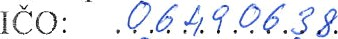 IČO: 06490638